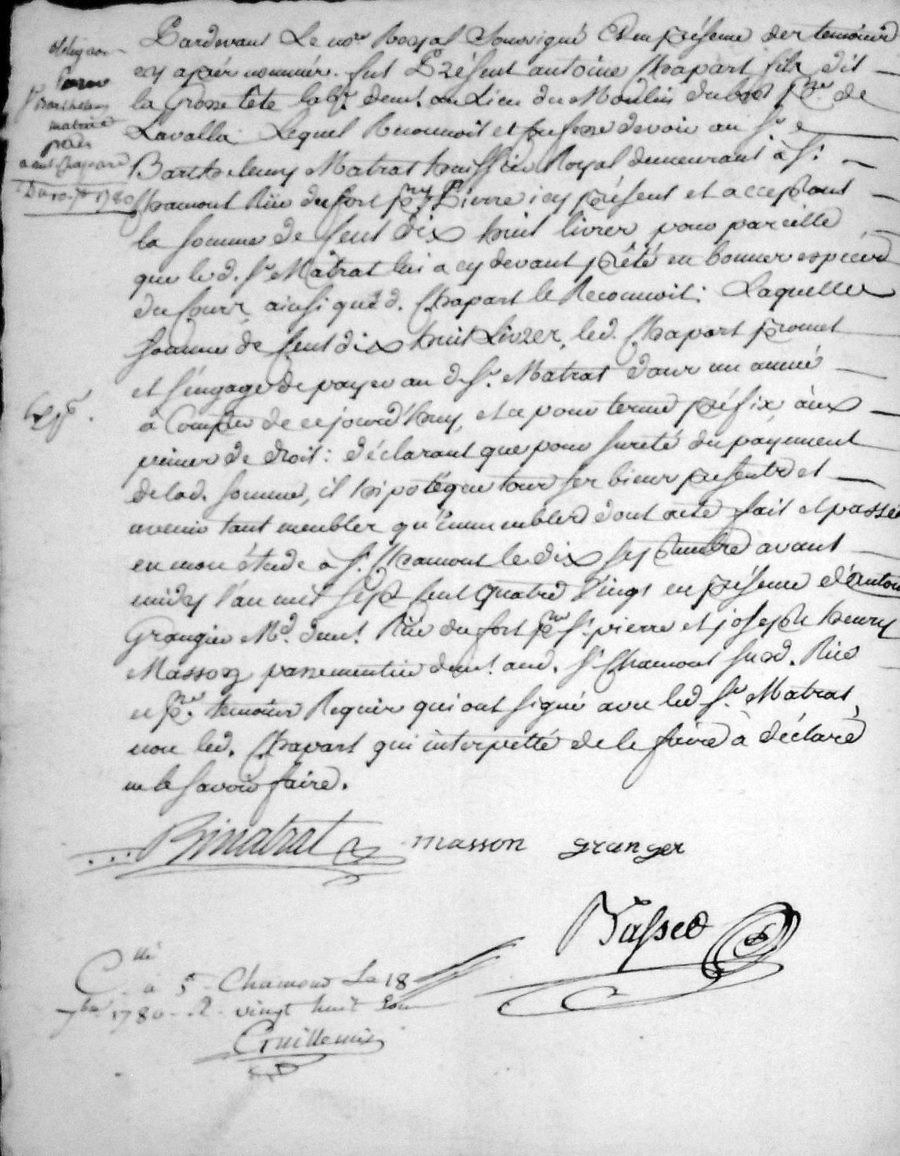 obligation
pour
Sr Barthelemy
matrat
par
ant Chapart
Du 10 7bre 1780
Pardevant Le nore Royal Soussigné Et en présence des temoins
cy après nommés. fut Présent antoine Chapart fils dit
la Grosse tête labr demt au Lieu du Moulin du bost psse de
Lavalla. Lequel Reconnoit et confesse devoir au Sr
Barthelemy Matrat huissier Royal demeurant à St
Chamont Rüe du fort psse St Pierre icy présent et acceptant
la somme de Cent dix huit livres pour pareille
que led. Sr Matrat lui a cy devant prêté en bonnes espèces
du Cours, ainsi que d. Chapart le Reconnoit; Laquelle
somme de Cent dix huit Livres, led. Chapart promet
et s'engage de payer au d. Sr Matrat dans un année
à Compter de ce jourd'huy, et ce pour terme préfix aux
peines de droit: déclarant que pour sureté du payement
de lad. somme, il hipotéque tous ses biens présents et
avenir tant meubles qu'immeubles dont acte fait et passé
en mon étude à St Chamont le dix septembre avant
midy l'an mil sept cent quatre vingt en présence d'antoine
Grangier Md demt Rüe du fort psse St pierre et joseph henry
Masson passementier demt aud. St Chamont susd. Rüe
et psse temoins Requis qui ont signé avec led Sr Matrat,
non led. Chapart qui interpellé de le faire à déclaré
ne le savoir faire.
BMatrat masson granger

Cllé à St Chamond Le 18
7bre 1780. R. vingt huit sous